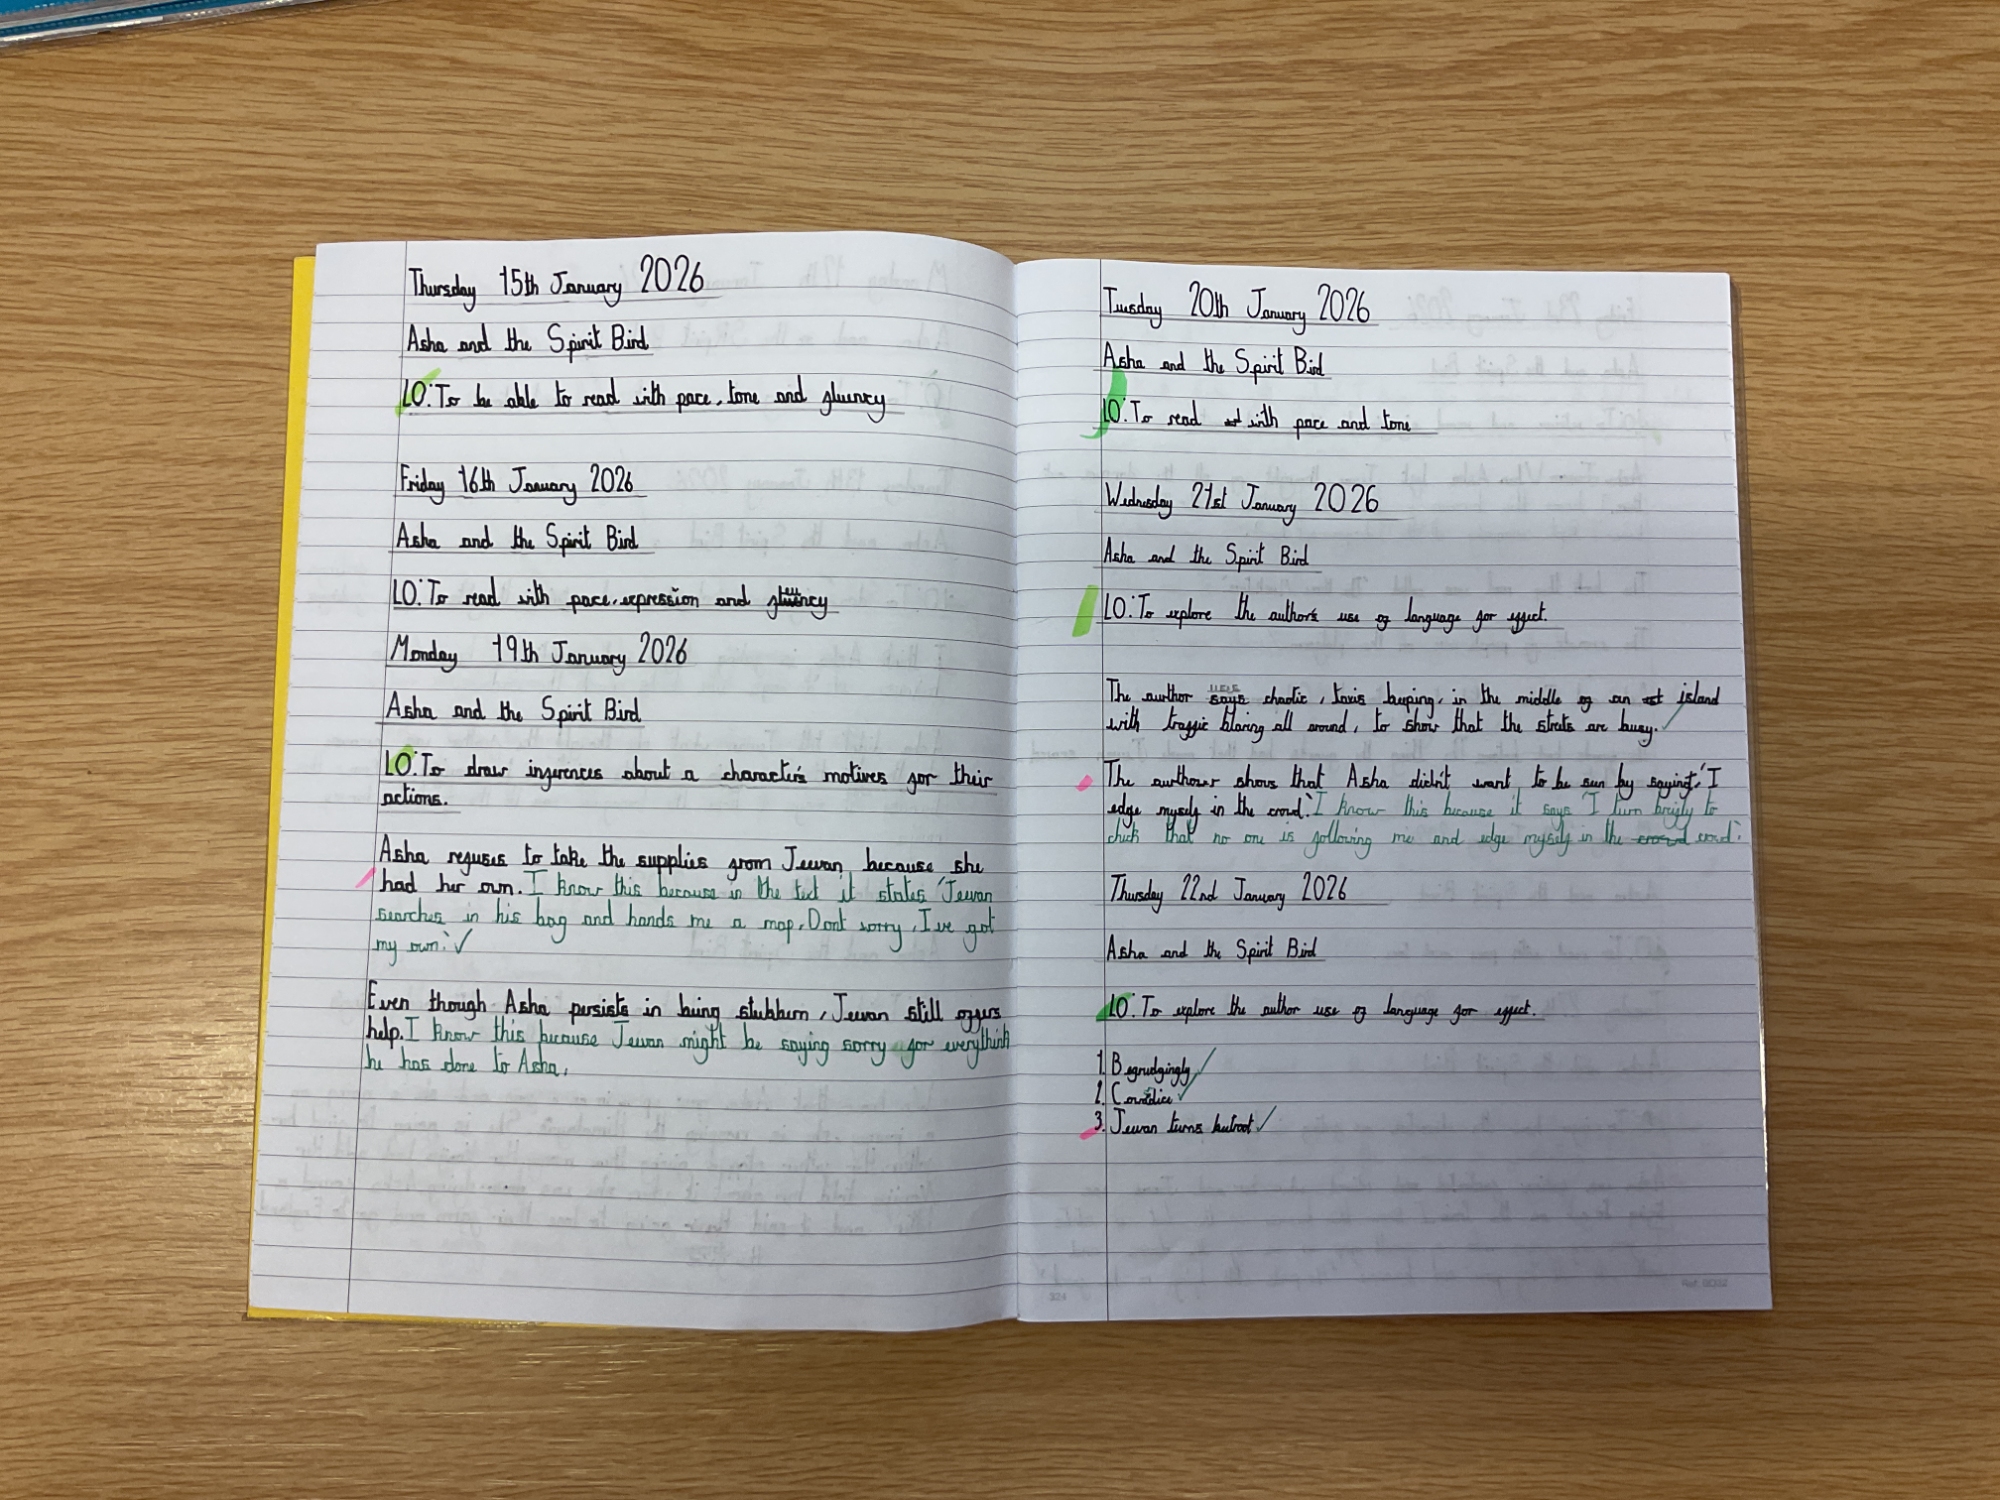 Thursday 15th January 2026
Asha and the Spirit Bird
LO: To be able to read with pace, tone and fluency
Friday 16th January 2026
Asha and the Spirit Bird
LO: To read with pace, expression and fluency
Monday 19th January 2026
Asha and the Spirit Bird
LO: To draw inferences about a character's motives for their
actions.
Asha refuses to take the supplies from Jeevan because she
had her own. I know this because in the text it states 'Jeevan
searches in his bag and hands me a map. Dont worry, I've got
my own.' ✓
Even though Asha persists in being stubbern, Jeevan still offers
help. I know this because Jeevan might be saying sorry for everythink
he has done to Asha.
Tuesday 20th January 2026
Asha and the Spirit Bird
LO: To read with pace and tone
Wednesday 21st January 2026
Asha and the Spirit Bird
LO: To explore the author's use of language for effect.
The aurthor uses chaotic, taxis beeping, in the middle of an island
with traffic blaring all around, to show that the streets are busy. ✓
The aurthour shows that Asha didn't want to be seen by saying, 'I
edge myself in the crowd.' I know this because it says 'I turn briefly to
check that no one is following me and edge myself in the crowd.'
Thursday 22nd January 2026
Asha and the Spirit Bird
LO: To explore the author use of language for effect.
1. Begrudgingly ✓
2. Cowardice ✓
3. Jeevan turns beetroot ✓